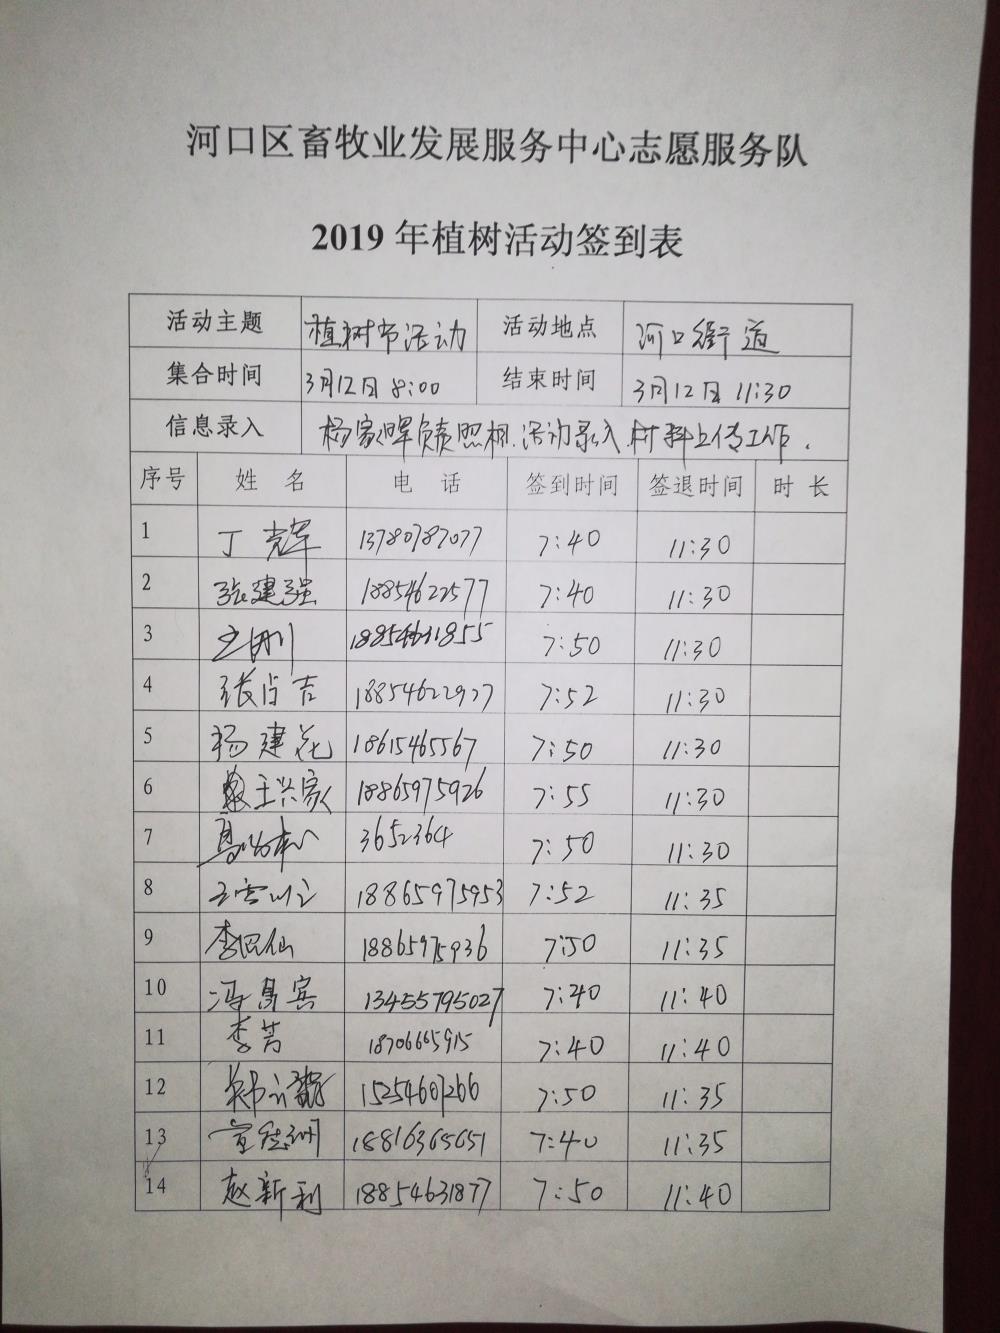 河口区畜牧业发展服务中心志愿服务队
2019 年植树活动签到表
活动主题 植树节活动 活动地点 河口街道
集合时间 3月12日 8:00 结束时间 3月12日 11:30
信息录入 杨家晖负责照相、活动录入、材料上传工作.
序号 姓 名 电 话 签到时间 签退时间 时 长
1 丁辉 13780787077 7:40 11:30
2 张建强 18854622577 7:40 11:30
3 7:50 11:30
4 张 吉 18854622927 7:52 11:30
5 杨建花 18615465567 7:50 11:30
6 王兴家 18865975926 7:55 11:30
7 3652364 7:50 11:30
8 18865975953 7:52 11:35
9 李 仙 18865975936 7:50 11:35
10 冯昌宾 13455795027 7:40 11:40
11 李芳 18706665915 7:40 11:40
12 郑 15254607266 7:50 11:35
13 18816365651 7:40 11:35
14 赵新利 18854631877 7:50 11:40